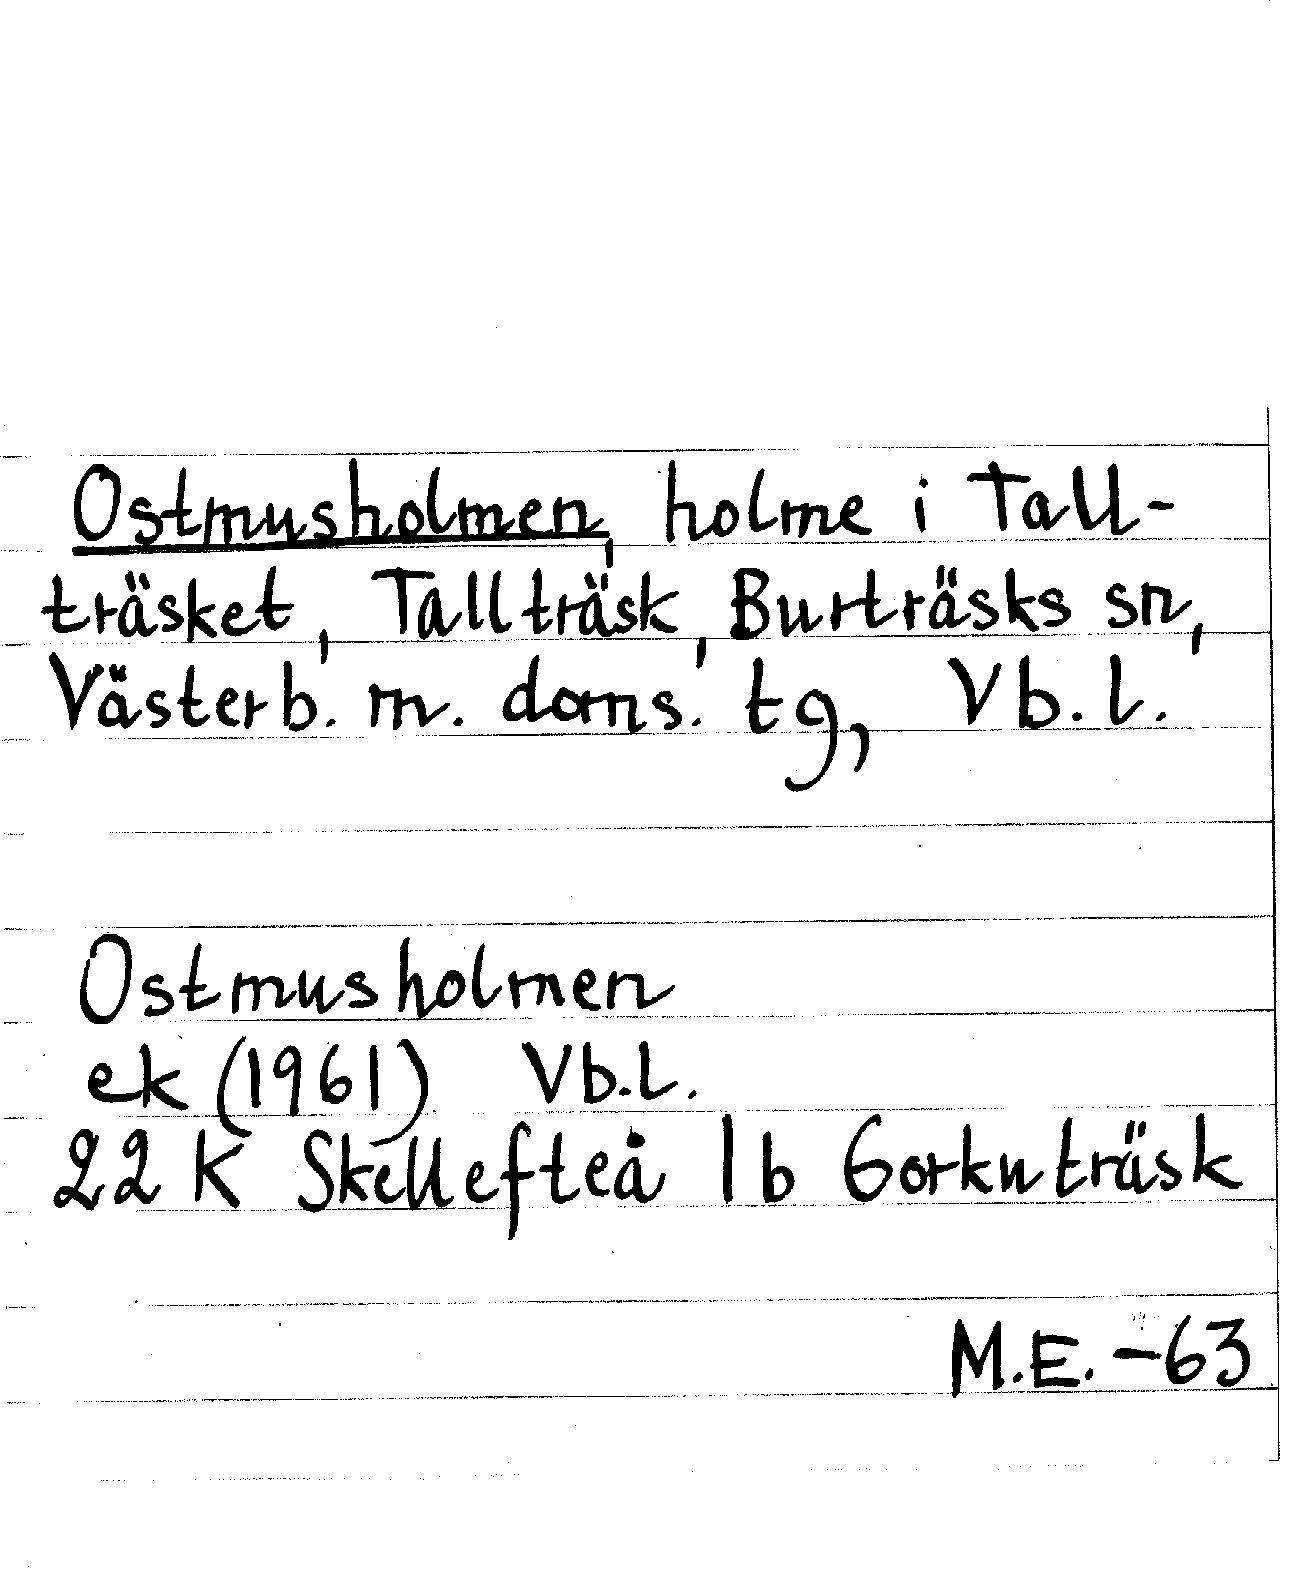 Ostmusholmen, holme i Tall-
träsket, Tallträsk, Burträsks sn,
Västerb. m. doms. tg, Vb.l.
Ostmusholmen
ek (1961) Vb.l.
22 K Skellefteå 1b Gorkuträsk
M.E. -63